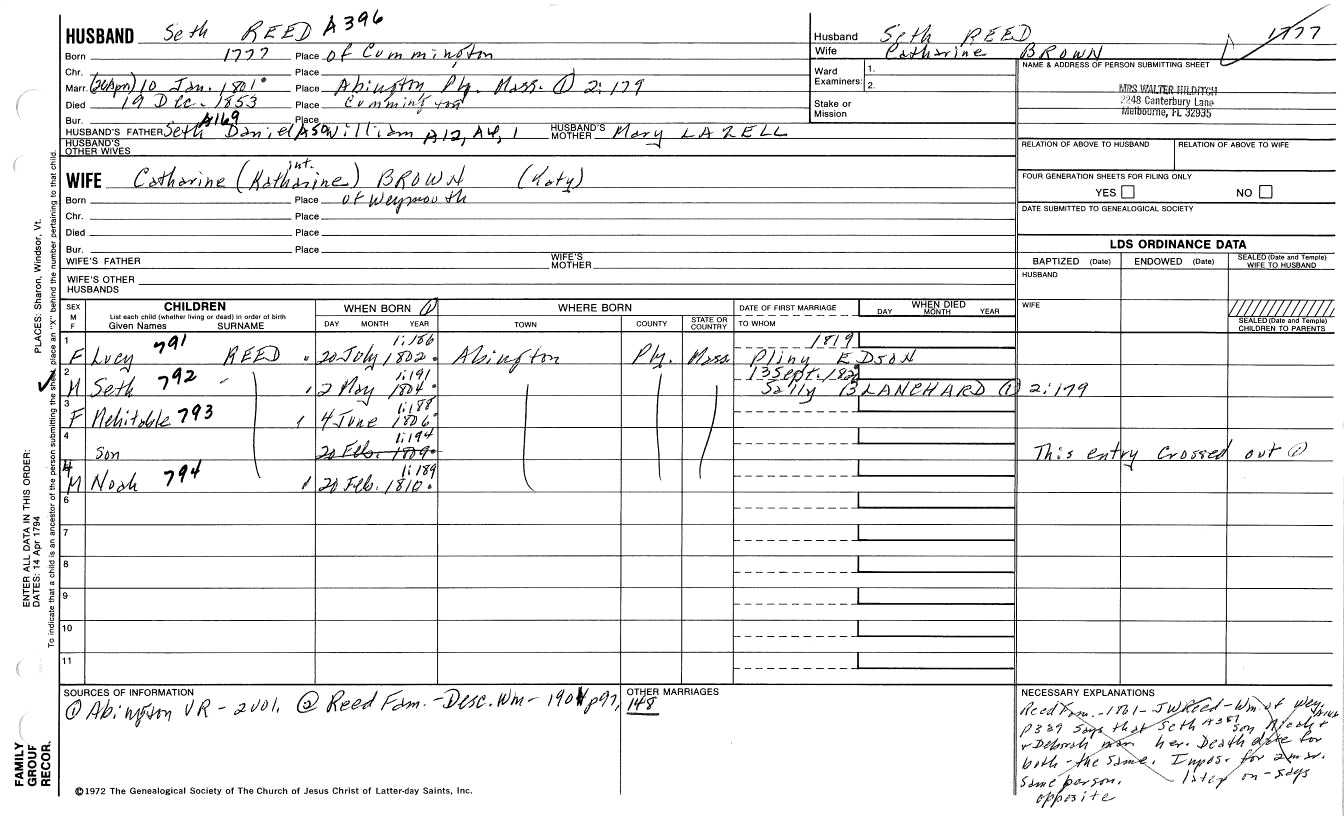 HUSBAND Seth REED A396
Born 1777 Place of Cummington
Chr. Place
Marr. (26 Apn) 10 Jan. 1801 Place Abington Ply. Mass. ① 2:179
Died 19 Dec. 1853 Place Cummington
Bur. Place
A169
HUSBAND'S FATHER Seth Daniel A50 William A12, A4, 1 HUSBAND'S MOTHER Mary LAZELL
HUSBAND'S OTHER WIVES
int.
WIFE Catharine (Katharine) BROWN (Katy)
Born Place of Weymouth
Chr. Place
Died Place
Bur. Place
WIFE'S FATHER WIFE'S MOTHER
WIFE'S OTHER HUSBANDS
Husband Seth REED 1777
Wife Catharine BROWN
Ward Examiners: 1. 2.
Stake or Mission
NAME & ADDRESS OF PERSON SUBMITTING SHEET
MRS WALTER HILDITCH
2248 Canterbury Lane
Melbourne, FL 32935
RELATION OF ABOVE TO HUSBAND RELATION OF ABOVE TO WIFE
FOUR GENERATION SHEETS FOR FILING ONLY
YES NO
DATE SUBMITTED TO GENEALOGICAL SOCIETY
LDS ORDINANCE DATA
BAPTIZED (Date) ENDOWED (Date) SEALED (Date and Temple) WIFE TO HUSBAND
HUSBAND
WIFE
SEALED (Date and Temple) CHILDREN TO PARENTS
SEX M F CHILDREN WHEN BORN ① WHERE BORN DATE OF FIRST MARRIAGE WHEN DIED
List each child (whether living or dead) in order of birth
Given Names SURNAME DAY MONTH YEAR TOWN COUNTY STATE OR COUNTRY TO WHOM DAY MONTH YEAR
1 791 1:186 1819
F Lucy REED 20 July 1802 Abington Ply. Mass Pliny EDSON
2 792 1:191 13 Sept. 182
M Seth 2 May 1804 Sally BLANCHARD ① 2:179
3 1:188
F Mehitable 793 4 June 1806
4 1:194
son 20 Feb. 1809 This entry crossed out ①
4 1:189
M Noah 794 20 Feb. 1810
6
7
8
9
10
11
SOURCES OF INFORMATION
① Abington VR - 2 vol. ② Reed Fam. - Desc. Wm - 1901 p97, 148
OTHER MARRIAGES
NECESSARY EXPLANATIONS
Reed Fam. - 1861 - JW Reed - Wm of Wey.
p 339 says that Seth A381 son Micah +
+ Deborah marr her. Death date for
both - the same. Impos. for 2 mar.
same person. later on - says
opposite
©1972 The Genealogical Society of The Church of Jesus Christ of Latter-day Saints, Inc.
PLACES: Sharon, Windsor, Vt.
ENTER ALL DATA IN THIS ORDER:
DATES: 14 Apr 1794
To indicate that a child is an ancestor of the person submitting the sheet, place an "X" behind the number pertaining to that child.
FAMILY
GROUP
RECOR.